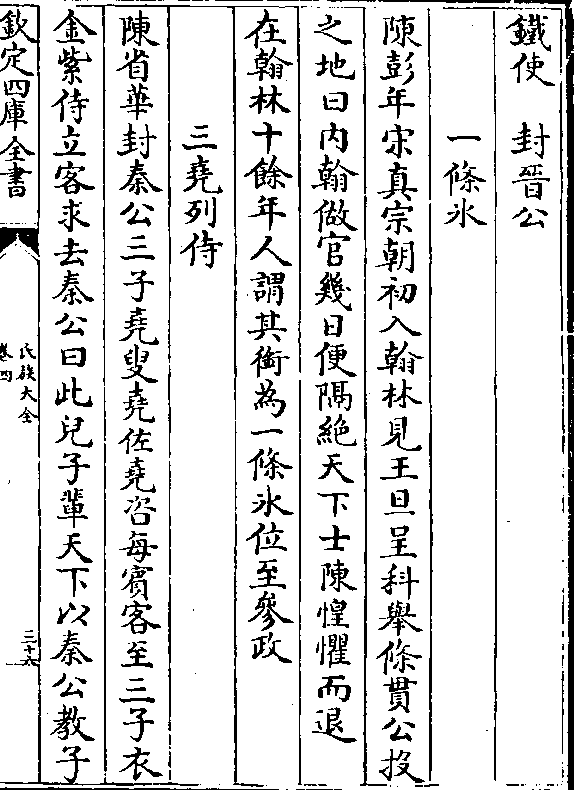 鐵使　封晉公
一條氷
陳彭年宋真宗朝初入翰林見王旦呈科舉條貫公投
之地曰内翰做官幾日便隔絶天下士陳惶懼而退
在翰林十餘年人謂其銜為一條氷位至參政
三堯列侍
陳省華封秦公三子堯叟堯佐堯咨每賓客至三子衣
金紫侍立客求去秦公曰此兒子輩天下以秦公教子
欽定四庫全書
氏族大全
卷四
三十六